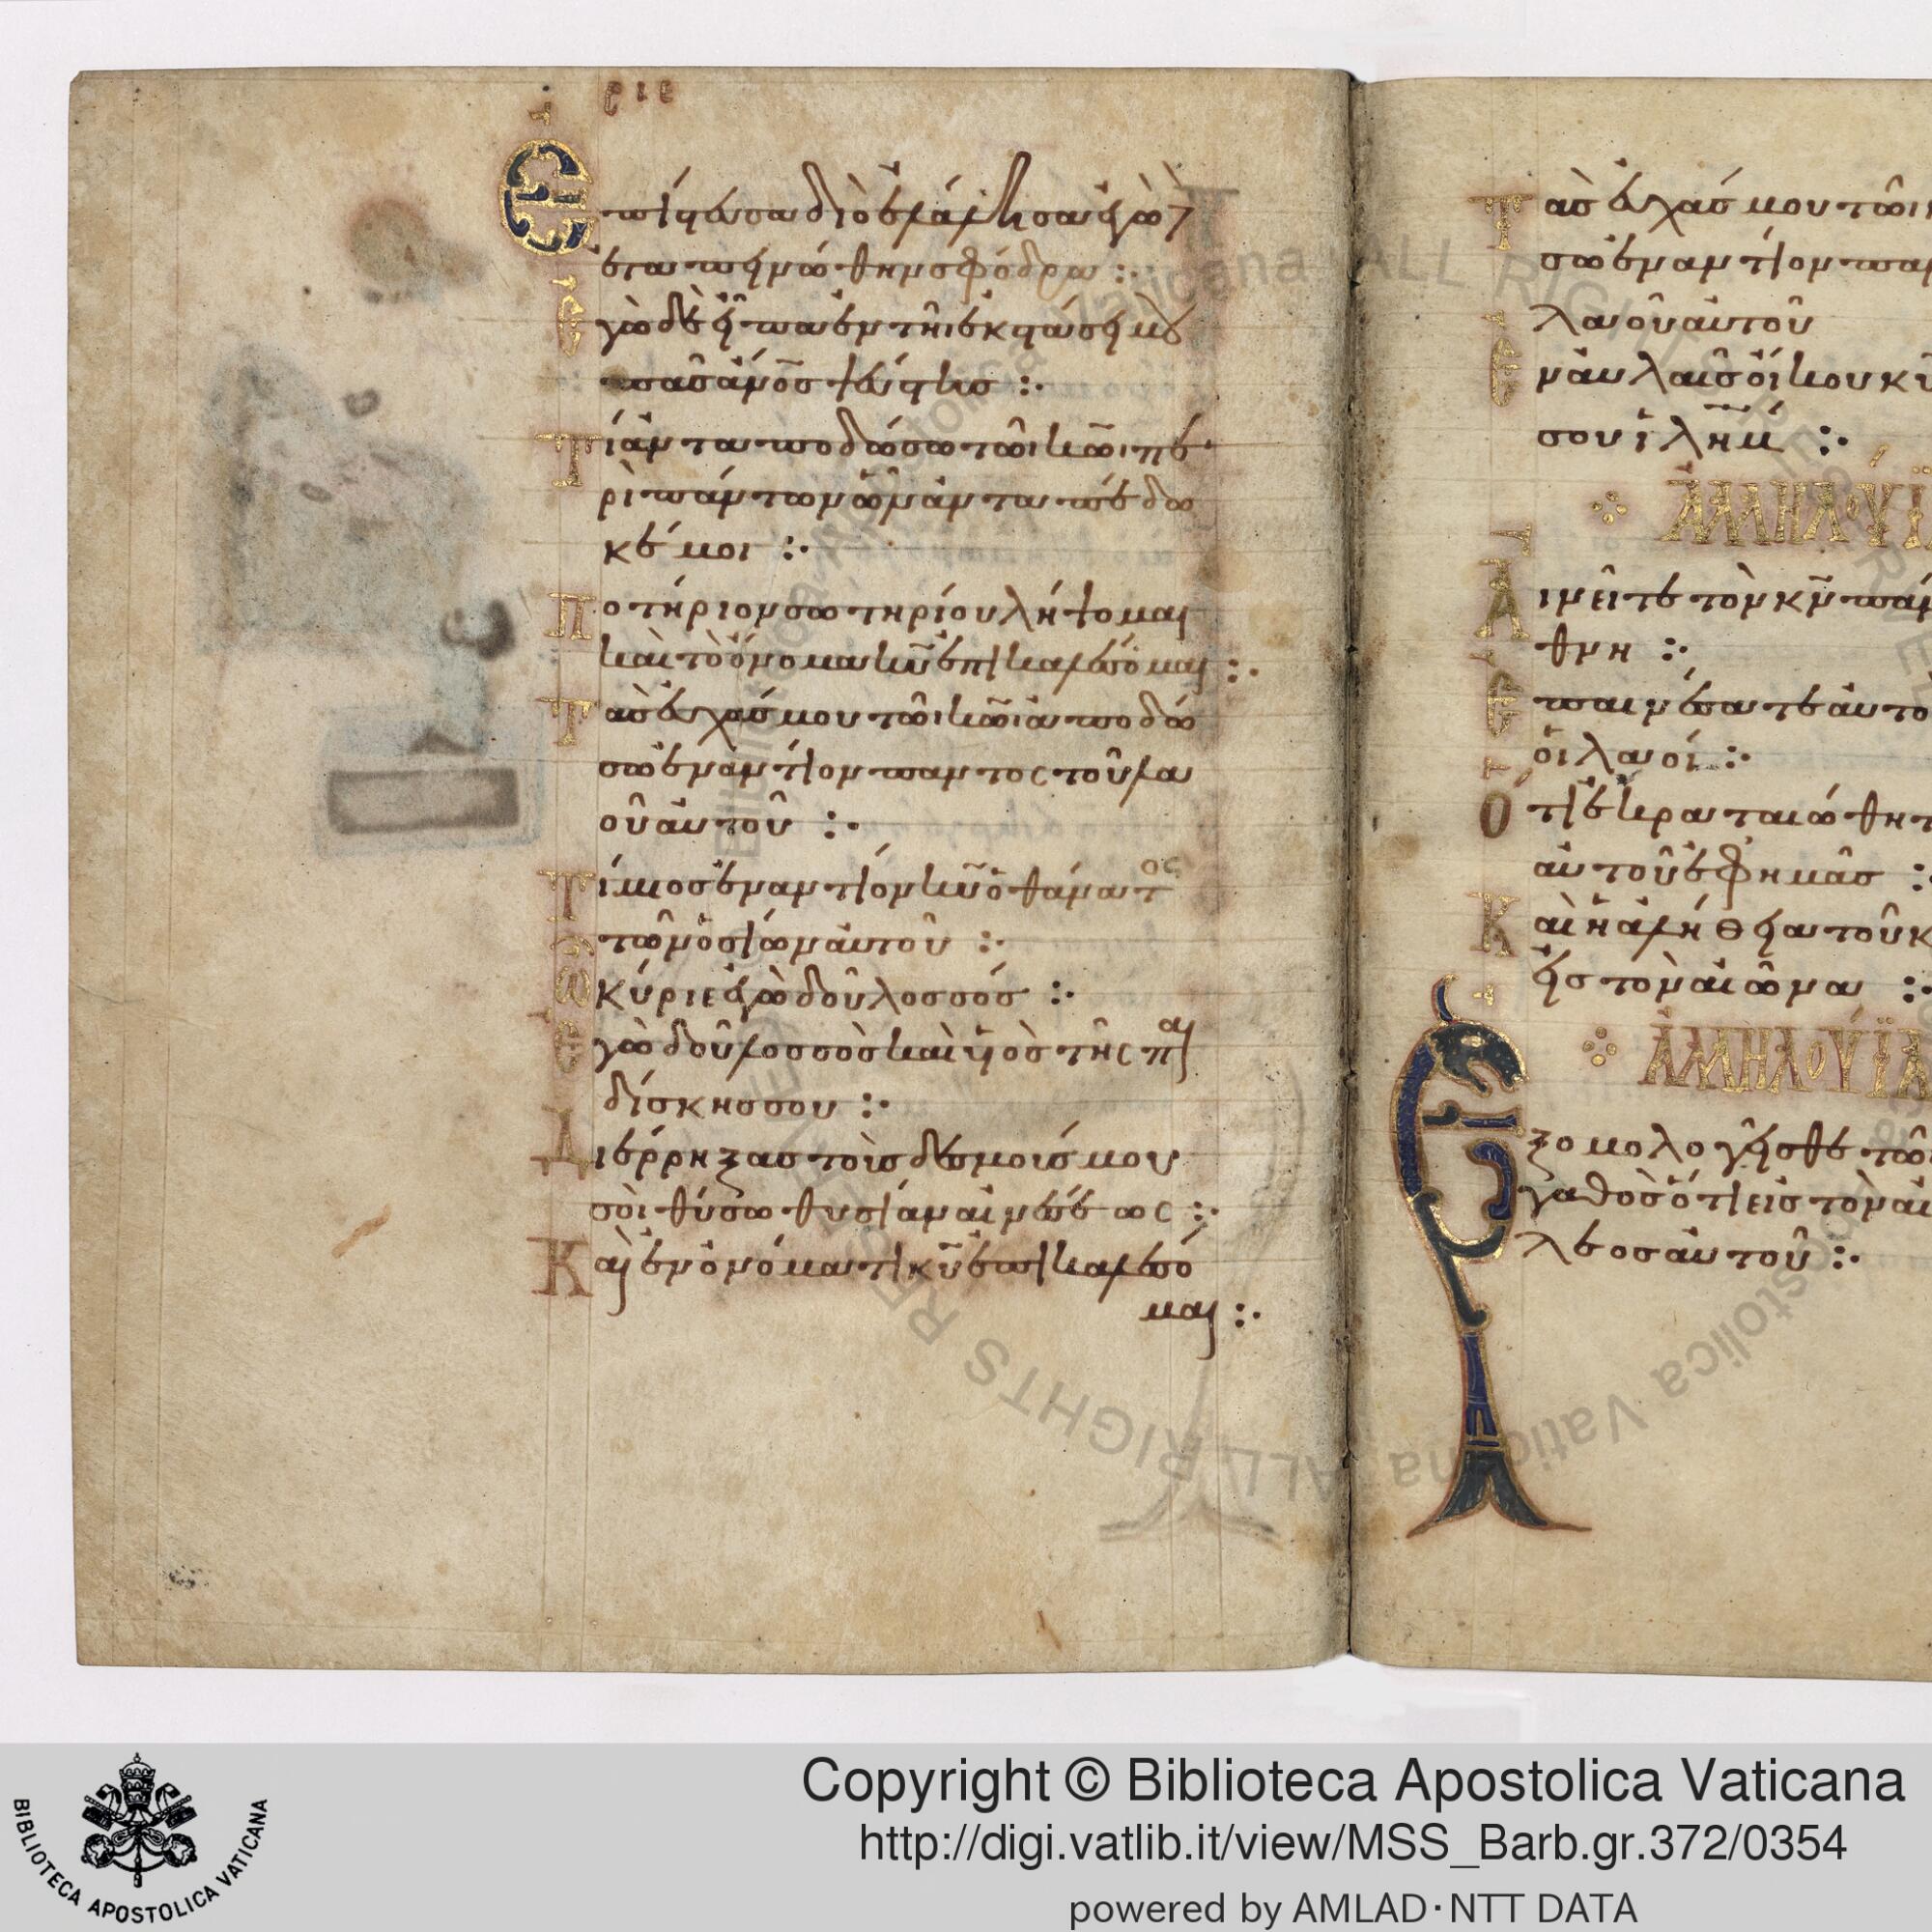 ριε
Επίστευσα διὸ ἐλάλησα ἐγὼ
ἐταπεινώθην σφόδρα :·
Ἐγὼ δὲ εἶπα ἐν τῆι ἐκστάσει μου
πᾶς ἄνος ψεύστης :·
Τί ἀνταποδώσω τῶι κῶι πε
ρὶ πάντων ὧν ἀνταπέδω
κέ μοι :·
Ποτήριον σωτηρίου λήψομαι
καὶ τὸ ὄνομα κυ ἐπικαλέσομαι :·
Τὰς εὐχάς μου τῶι κῶι ἀποδώ
σω ἐναντίον παντος τοῦ λα
οῦ αὐτοῦ :·
Τίμιος ἐναντίον κυ ὁ θάνατος
τῶν ὁσίων αὐτοῦ :·
Ὦ κύριε ἐγὼ δοῦλος σός :·
Ἐγὼ δοῦλος σὸς καὶ υἱὸς τῆς παι
δίσκης σου :·
Διέρρηξας τοὺς δεσμούς μου
σοὶ θύσω θυσίαν αἰνέσεως :·
Καὶ ἐν ὀνόματι κυ ἐπικαλέσο
μαι :·
Τὰς εὐχάς μου τῶι
σω ἐναντίον παν
λαοῦ αὐτοῦ
Ἐν αὐλαῖς οἴκου κυ
σου ἰλημ :·
ἈΛΛΗΛΟΎΪΑ
Αἰνεῖτε τὸν κν πάν
θνη :·
Ἐπαινέσατε αὐτὸ
οἱ λαοί :·
Ὅτι ἐκραταιώθη τ
αὐτοῦ ἐφ ημᾶς :·
Καὶ ἡ ἀλήθεια τοῦ κ
εἰς τὸν αἰῶνα :·
ἈΛΛΗΛΟΎΪΑ
Ἐξομολογεῖσθε τῶι
γαθὸς ὅτι εἰς τὸν αἰ
λεος αὐτοῦ :·
Copyright © Biblioteca Apostolica Vaticana
http://digi.vatlib.it/view/MSS_Barb.gr.372/0354
powered by AMLAD·NTT DATA
BIBLIOTECA APOSTOLICA VATICANA